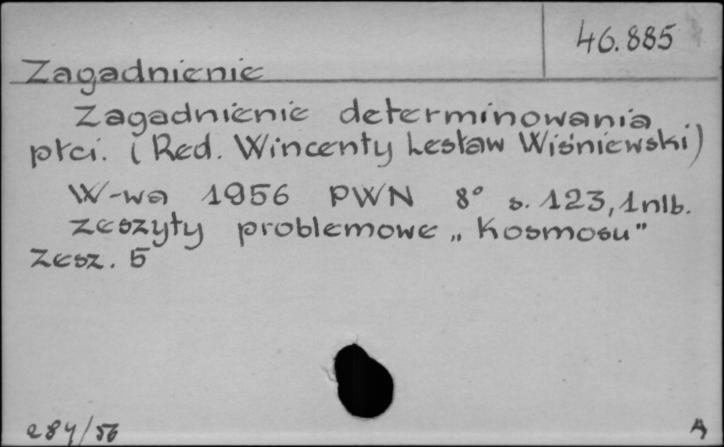 46.885
Zagadnienie
Zagadnienie determinowania
płci. (Red. Wincenty Lesław Wiśniewski)
W-wa 1956 PWN 8° s. 123, 1 nlb.
zeszyty problemowe „Kosmosu"
Zesz. 5
284/56 A